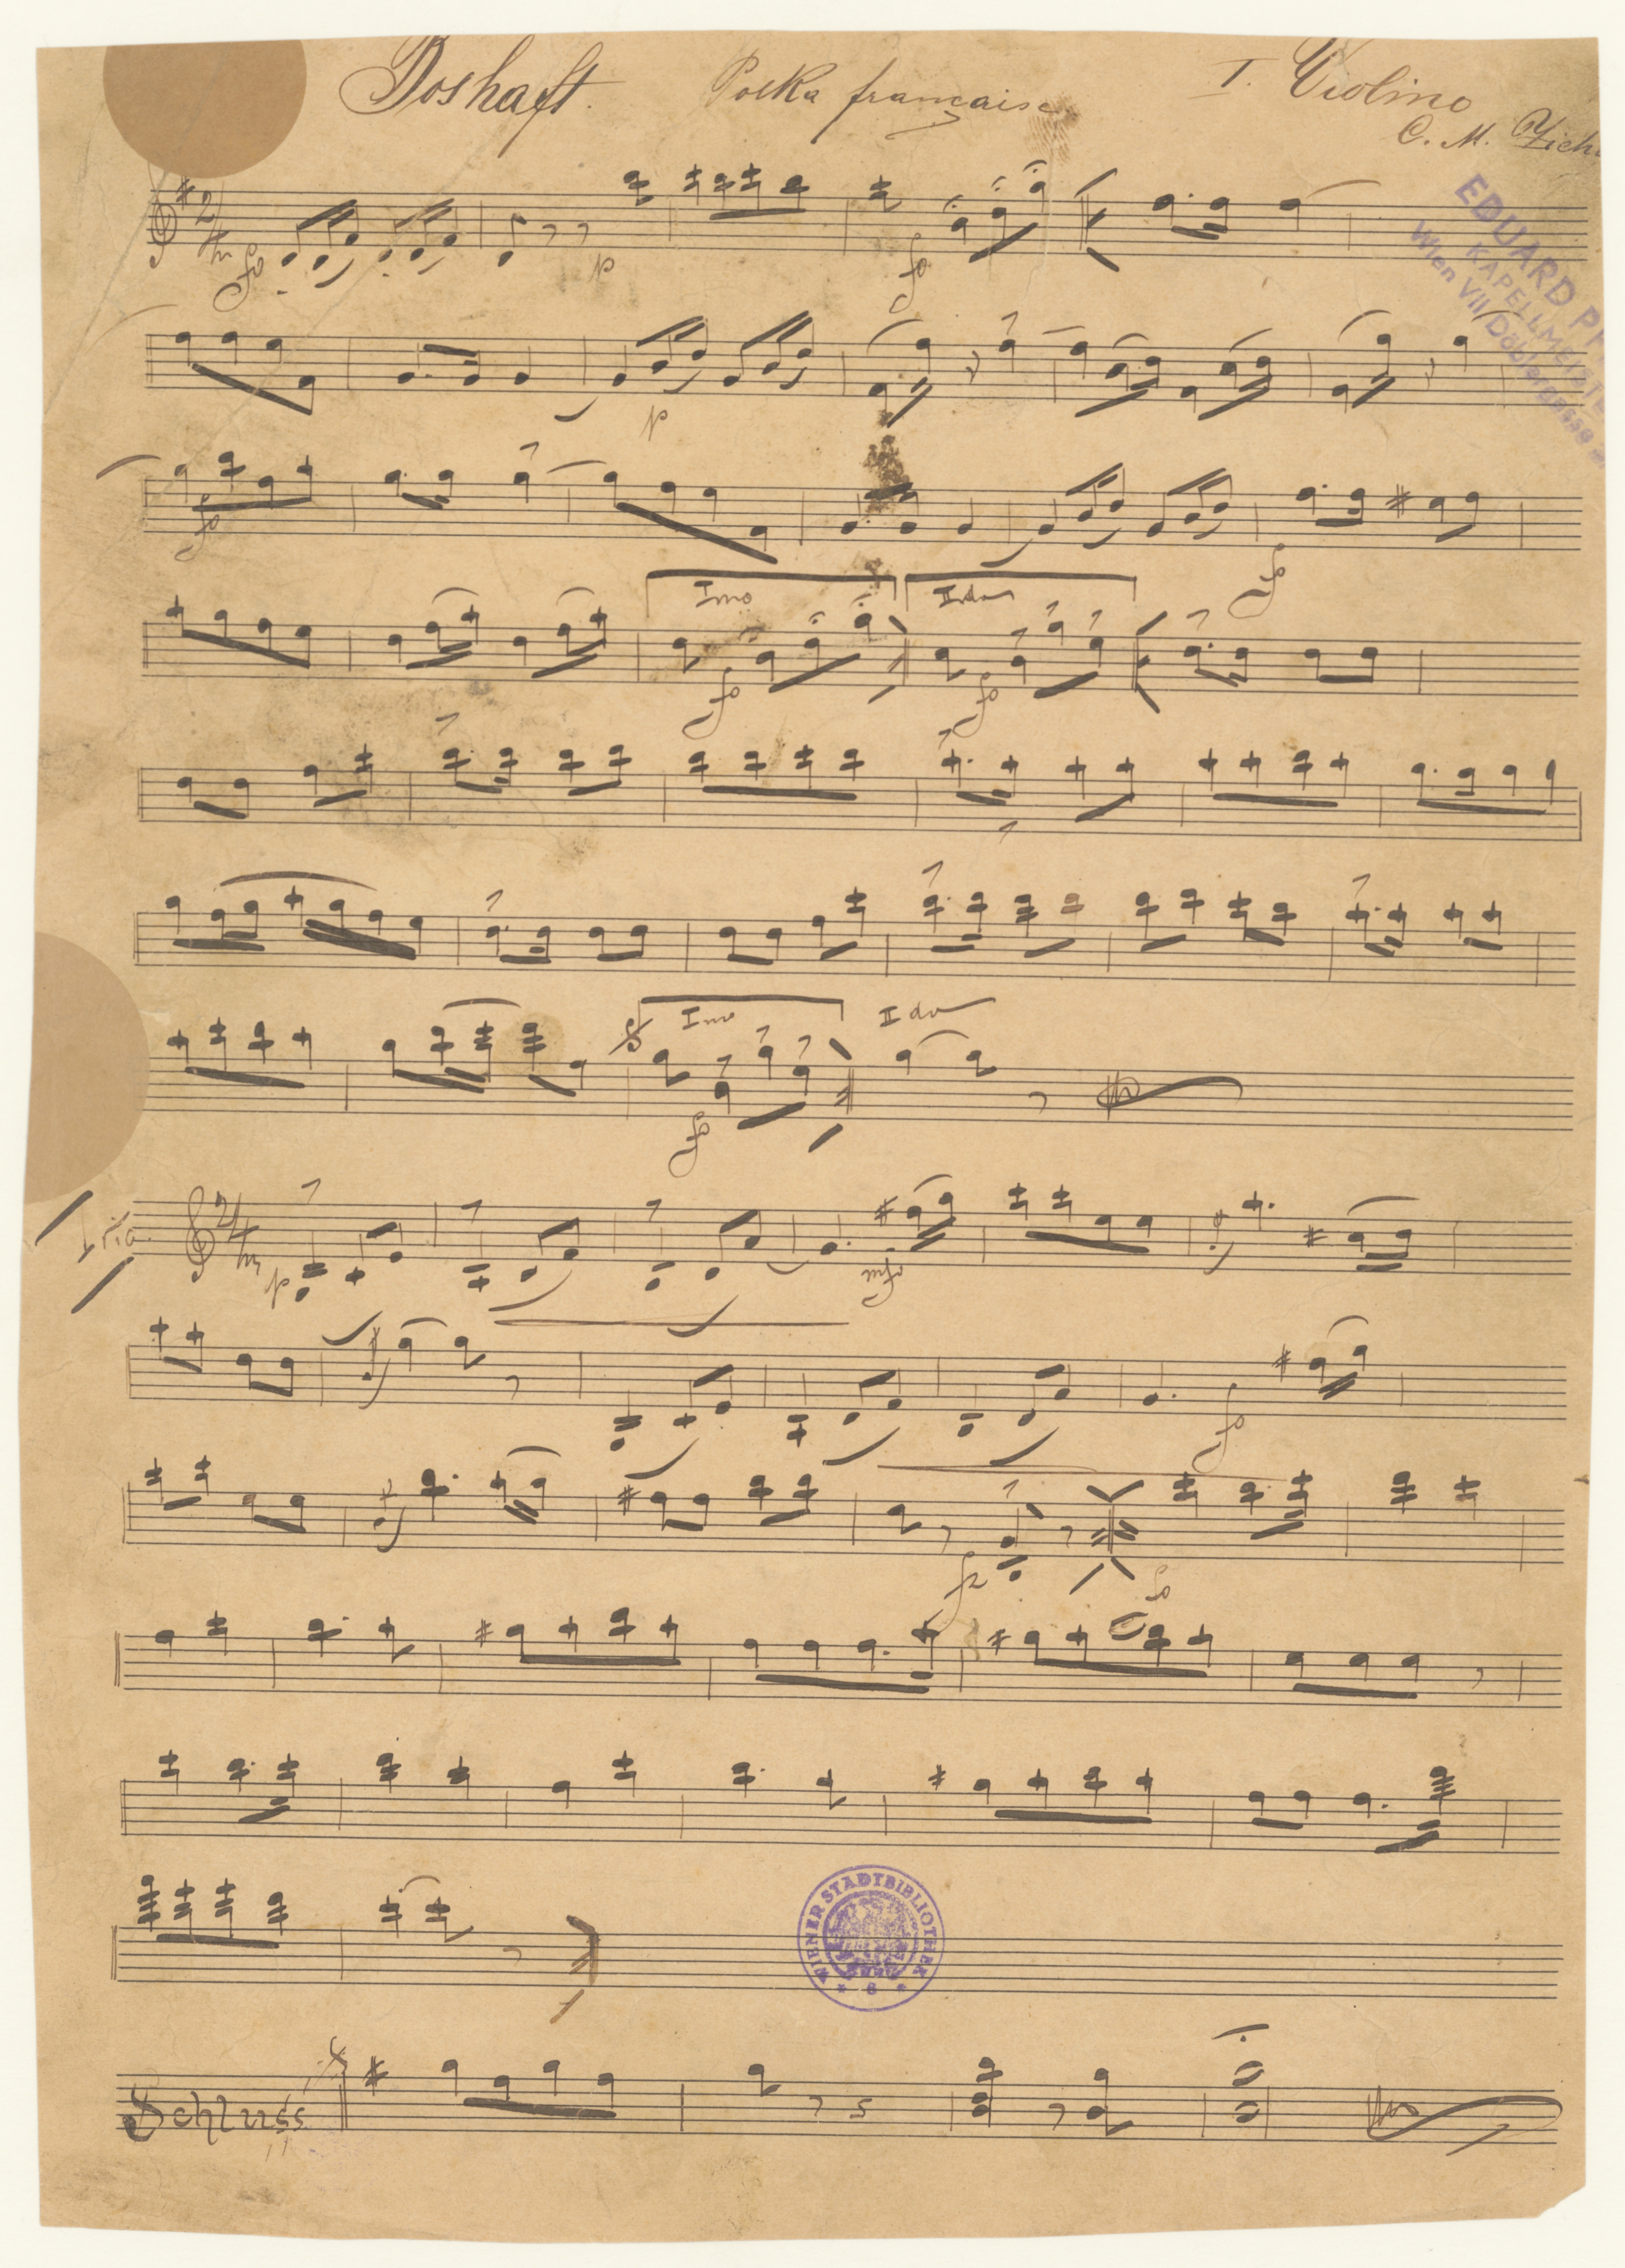 Boshaft. Polka française I. Violino
C. M.
EDUARD
KAPELLMEISTE
Wien VII Döblergasse
2/4
fo
p
fo
p
fo
fo
Imo IIdo
fo
fo
Imo IIdo
fo
Trio. 2/4
p
mfo
fo
fz
fo
WIENER STADTBIBLIOTHEK
* 6 *
Schluss